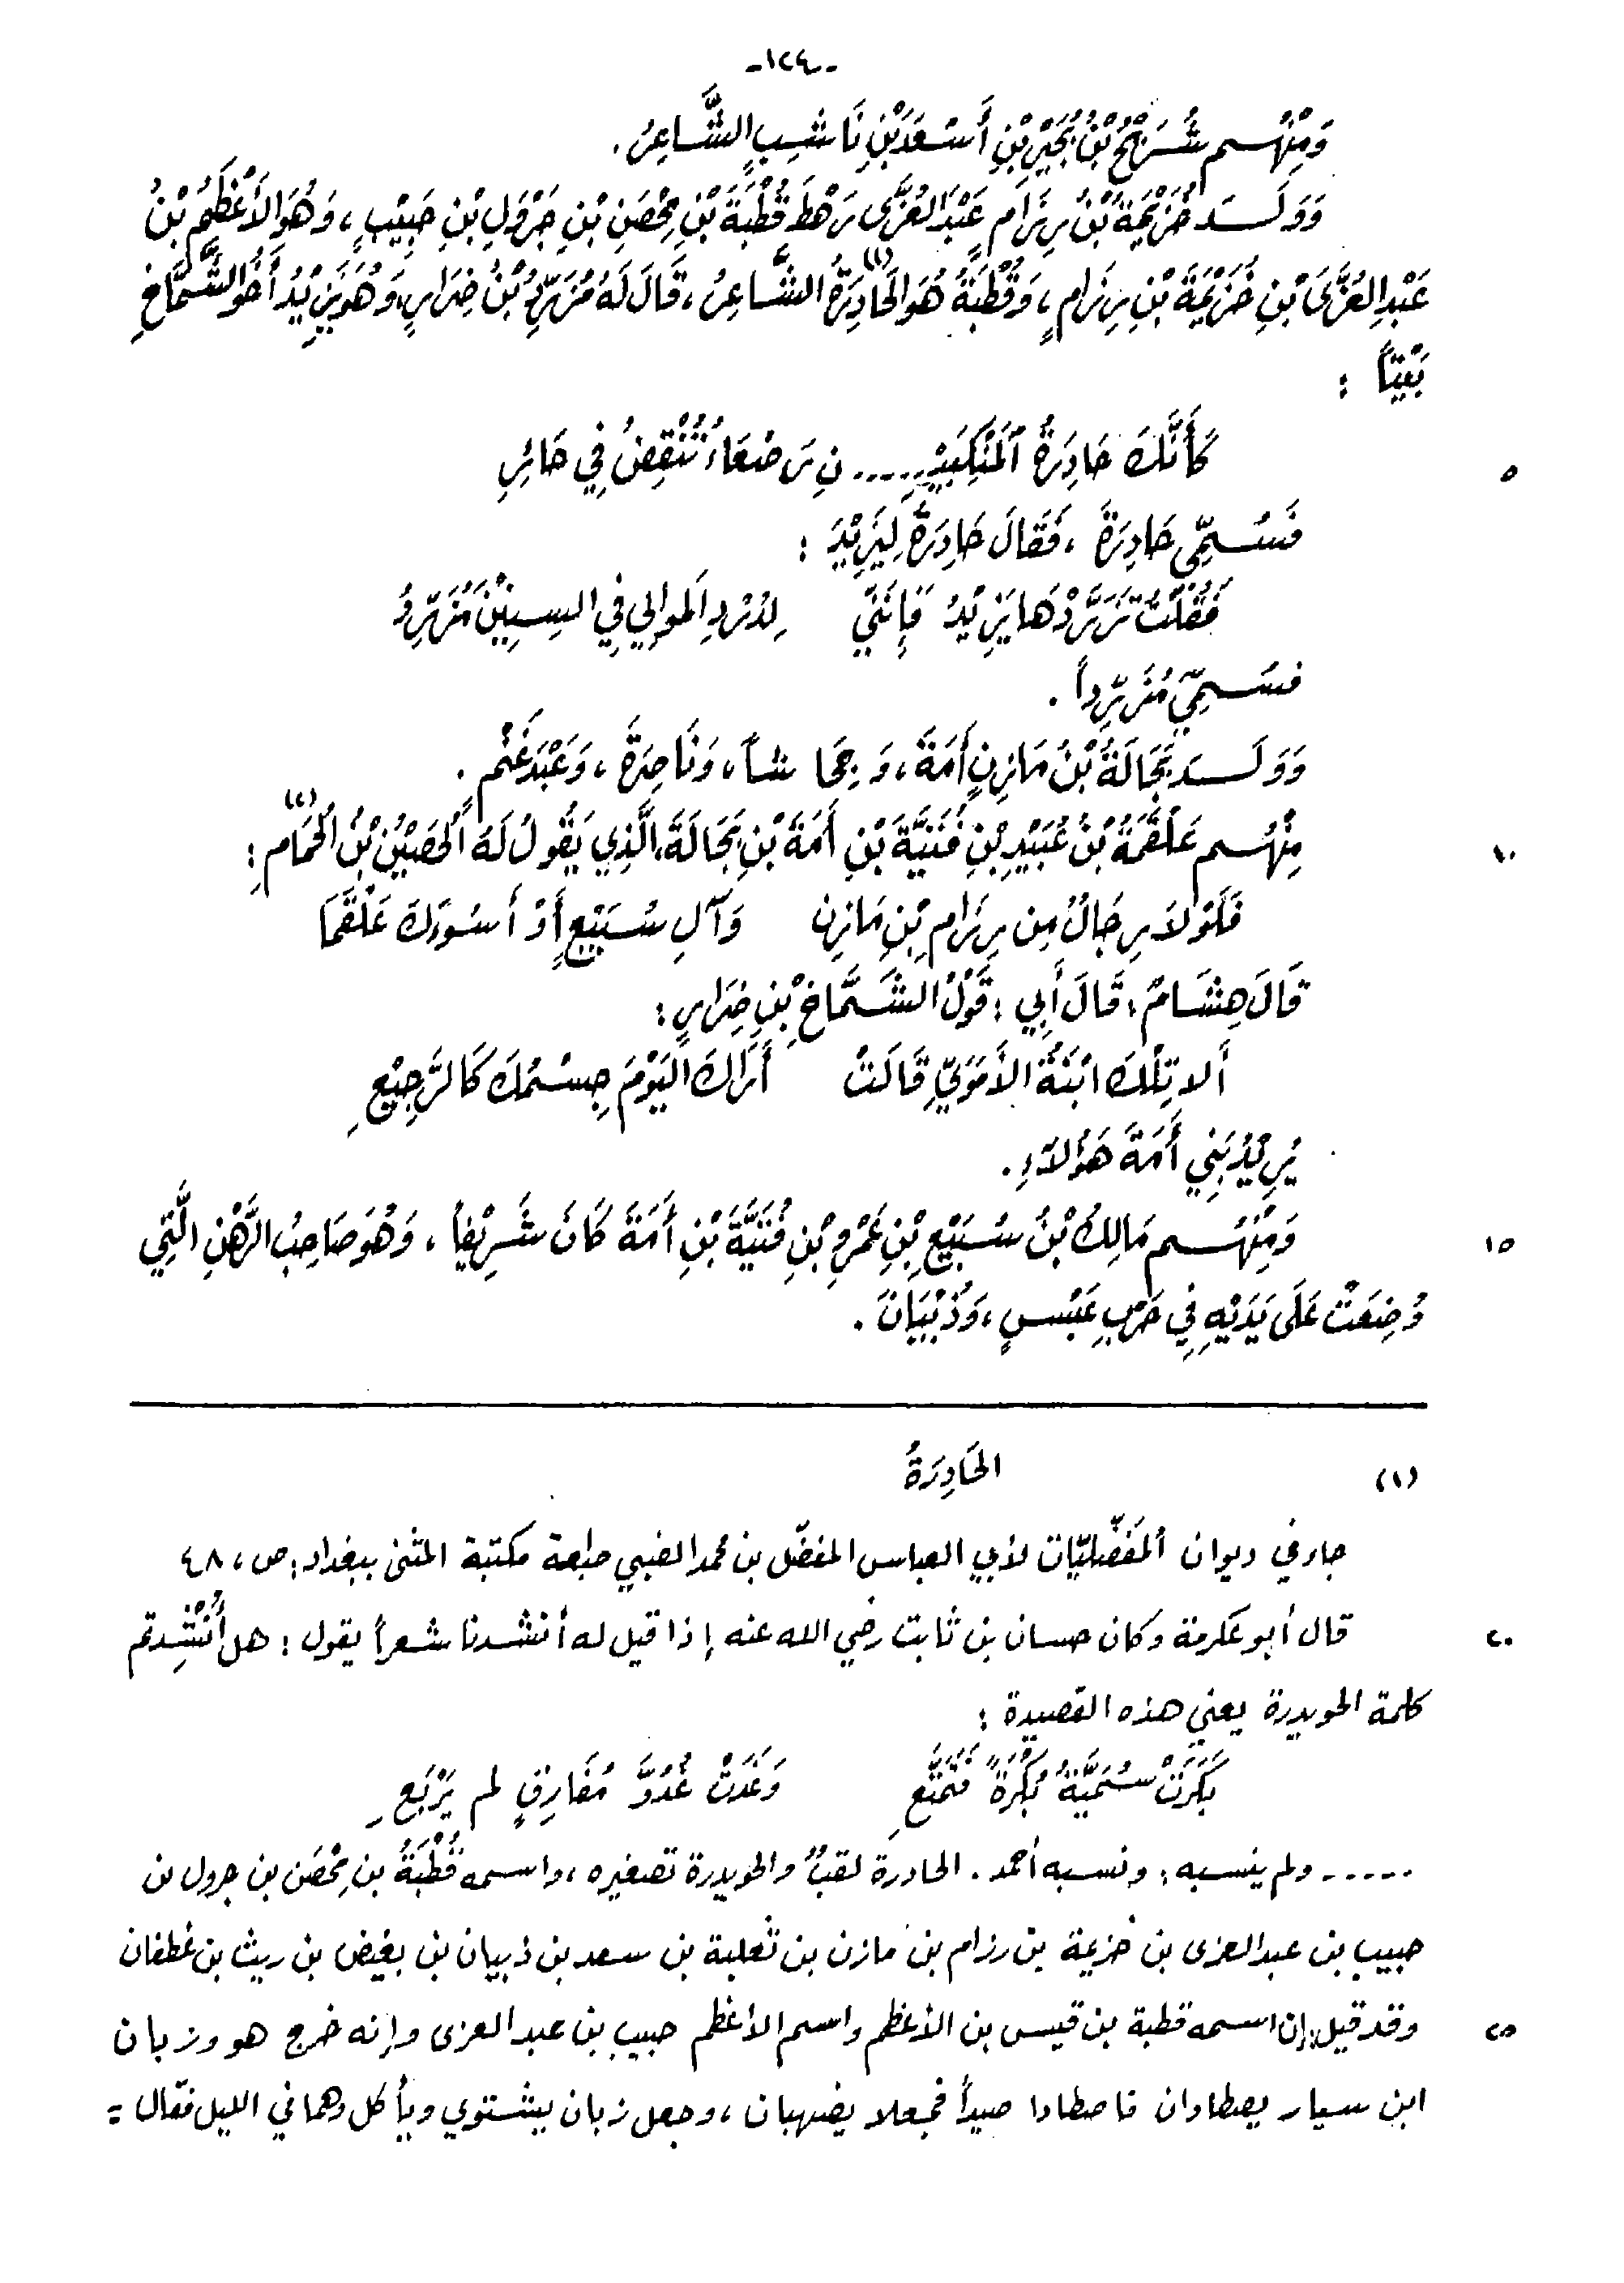 -١٢٤-
وَمِنْهُم شُرَيْحُ بْنُ بُجَيْرِ بْنِ أَسْعَدَ بْنِ نَاشِبٍ الشَّاعِرُ .
وَوَلَدَ خُزَيْمَةُ بْنُ رِزَامٍ عَبْدَ العُزَّى رَهْطَ قُطْبَةَ بْنِ مِحْصَنِ بْنِ جَرْوَلِ بْنِ حَبِيْبٍ ، وَهُوَ الأَعْظَمُ بْنُ
عَبْدِ العُزَّى بْنِ خُزَيْمَةَ بْنِ رِزَامٍ ، وَقُطْبَةُ هُوَ الحَادِرَةُ (١) الشَّاعِرُ ، قَالَ لَهُ مُزَرِّدُ بْنُ ضِرَارٍ ، وَهُوَ يَزِيْدُ أَخُو الشَّمَّاخِ
بَيْتاً :
٥ كَأَنَّكَ حَادِرَةُ المَنْكِبَيْـ ..... نِ رَصْعَاءُ تُنْقِضُ فِي حَائِرِ
فَسُمِّيَ حَادِرَةً ، فَقَالَ حَادِرَةُ لِيَزِيْدَ :
فَقُلْتُ تَزَرَّدْهَا يَزِيْدُ فَإِنَّنِي لِدُرْدِ المَوالِي فِي السِنِيْنَ مُزَرِّدُ
فسُمِّيَ مُزَرِّداً .
وَوَلَدَ بَجَالَةُ بْنُ مَازِنٍ أَمَةَ ، وَجِحَاشاً ، وَنَاصِرَةَ ، وَعَبْدَ غَنْمٍ .
١٠ مِنْهُم عَلْقَمَةُ بْنُ عُبَيْدِ بْنِ قُنَيَّةَ بْنِ أَمَةَ بْنِ بَجَالَةَ ، الَّذِي يَقُولُ لَهُ الحُصَيْنُ بْنُ الحُمَامِ (٢) :
فَلَوْلاَ رِجَالٌ مِن رِزَامِ بْنِ مَازِنٍ وَآلِ سُبَيْعٍ أَوْ أَسُوءَكَ عَلْقَمَا
قَالَ هِشَامٌ : قَالَ أَبِي : قَوْلُ الشَّمَّاخِ بْنِ ضِرَارٍ :
أَلا تِلْكَ ابْنَةُ الأَمَوِيِّ قَالَتْ أَرَاكَ اليَوْمَ جِسْمُكَ كَالرَّجِيْعِ
يُرِيْدُ بَنِي أَمَةَ هَؤُلاَءِ .
١٥ وَمِنْهُم مَالِكُ بْنُ سُبَيْعِ بْنِ عَمْرِو بْنِ قُنَيَّةَ بْنِ أَمَةَ كَانَ شَرِيْفاً ، وَهُوَ صَاحِبُ الرَّهْنِ الَّتِي
وُضِعَتْ عَلَى يَدَيْهِ فِي حَرْبِ عَبْسٍ ، وَذُبْيَانَ .
(١) الحَادِرَةُ
جاء في ديوان المُفَضَّلِيّات لأبي العباس المفضّل بن محمد الضبي طبعة مكتبة المثنى ببغداد : ص ، ٤٨
٢٠ قال أبو عكرمة وكان حسان بن ثابت رضي الله عنه إذا قيل له أنشدنا شعراً يقول : هل أُنْشِدتم
كلمة الحويدرة يعني هذه القصيدة :
بَكَرَتْ سُمَيَّةُ بُكْرَةً فَتَمَتَّعِ وَغَدَتْ غُدُوَّ مُفَارِقٍ لم يَرْبَعِ
..... ولم ينسبه ، ونسبه أحمد . الحادرة لقبٌ والحويدرة تصغيره ، واسمه قُطْبَةُ بن مِحْصَن بن جرول بن
حبيب بن عبد العزى بن خزيمة بن رزام بن مازن بن ثعلبة بن سعد بن ذبيان بن بغيض بن ريث بن غطفان
٢٥ وقد قيل : إن اسمه قطبة بن قيس بن الأعظم واسم الأعظم حبيب بن عبد العزى وإنه خرج هو وزبان
ابن سيار يصطادان فاصطادا صيداً فجعلا يضهبان ، وجعل زبان يشتوي ويأكل وهما في الليل فقال =